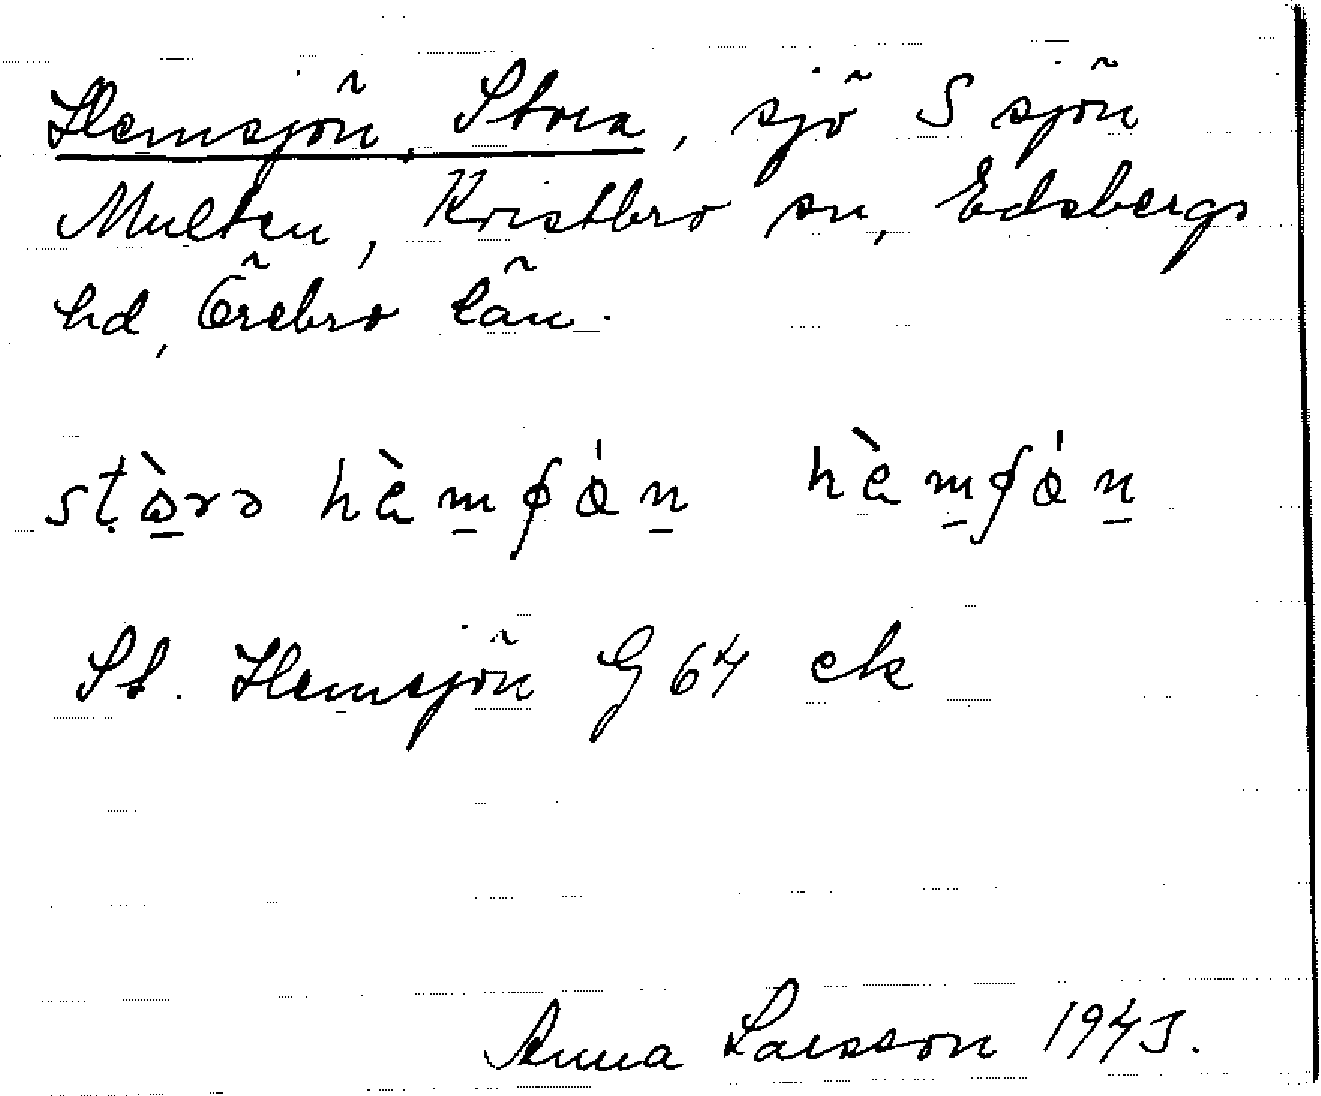 Hemsjön, Stora, sjö S sjön
Multen, Kvistbro sn, Edsbergs
hd, Örebro län.
stɷ̀rə hɛ̀mʃǿn hɛ̀mʃǿn
St. Hemsjön G 64 ek
Anna Larsson 1943.